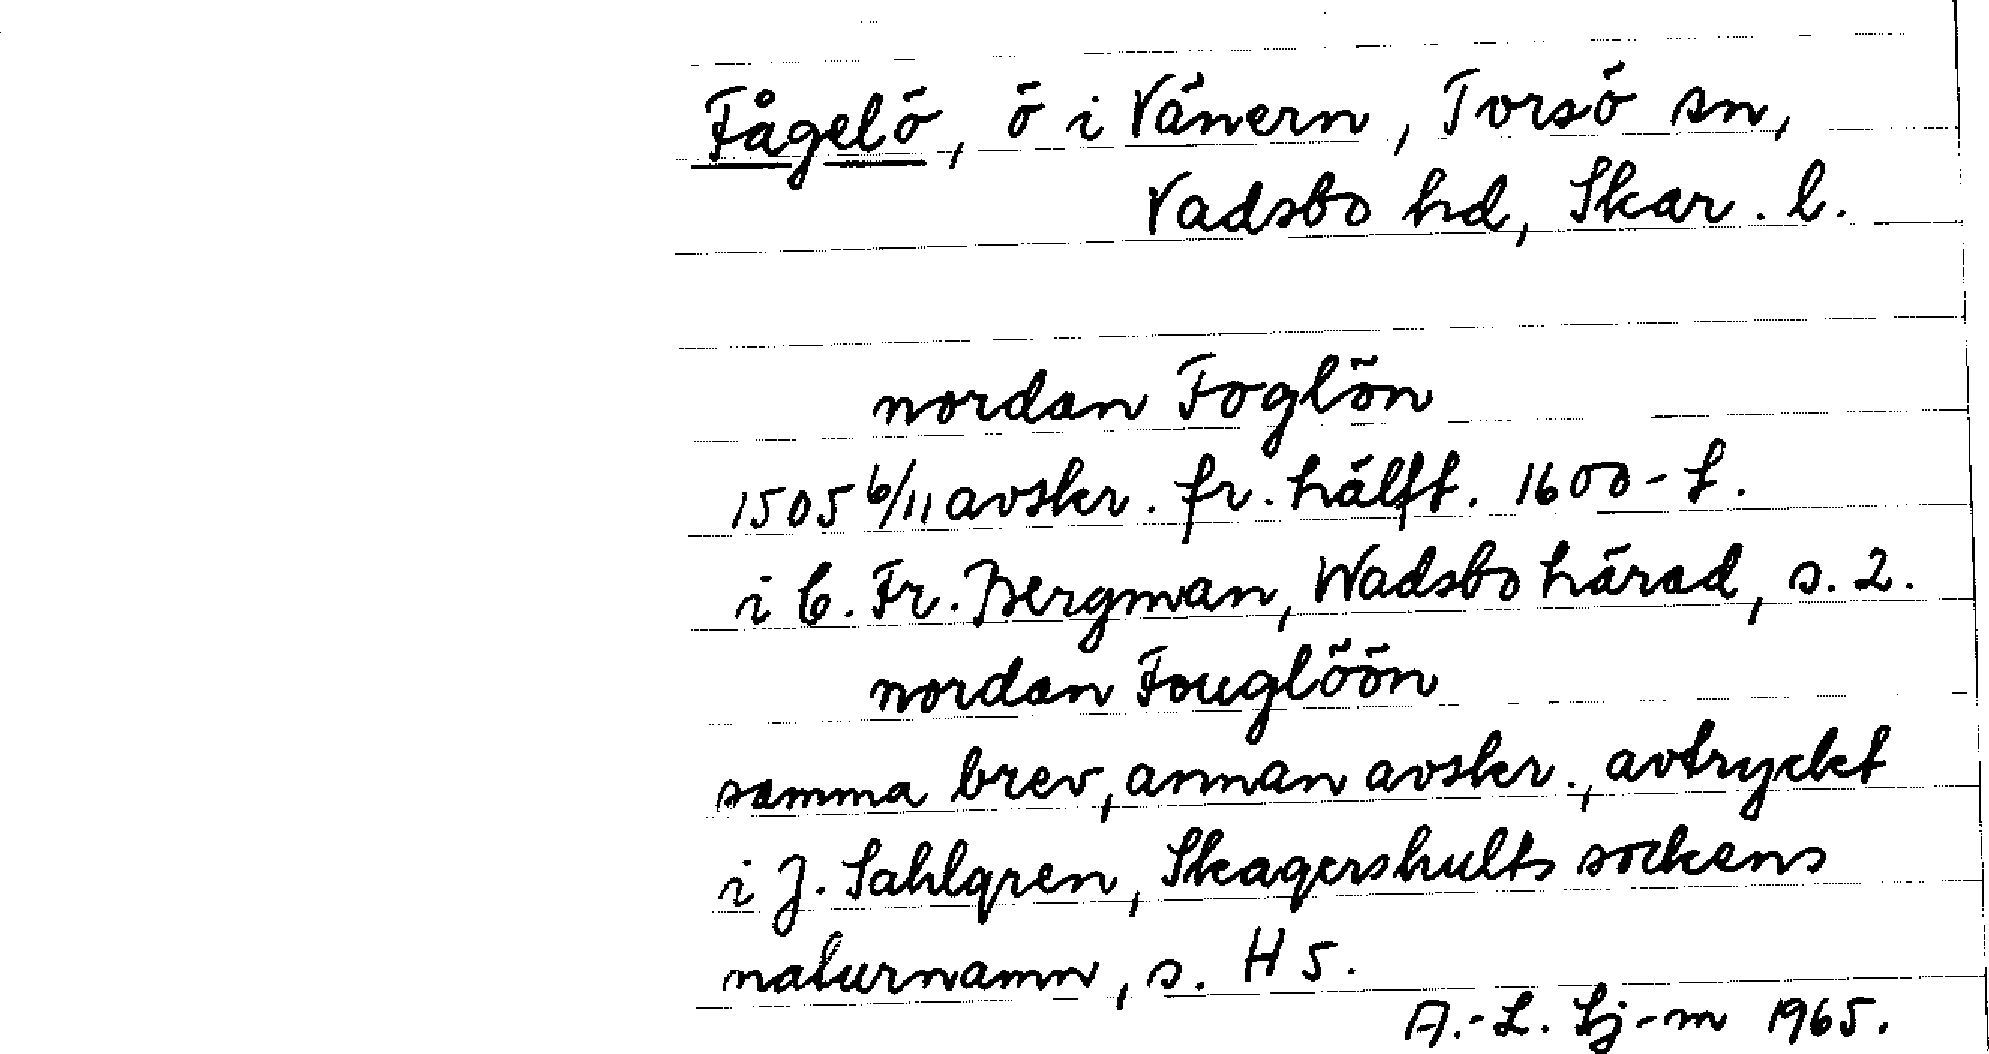 Fågelö, ö i Vänern, Torsö sn,
Vadsbo hd, Skar. l.
nordan Foglön
1505 6/11 avskr. fr. hälft. 1600-t.
i C. Fr. Bergman, Wadsbo härad, s. 2.
nordan Fouglöön
samma brev, annan avskr., avtryckt
i J. Sahlgren, Skagershults sockens
naturnamn, s. H 5.
A.-L. Lj-m 1965.